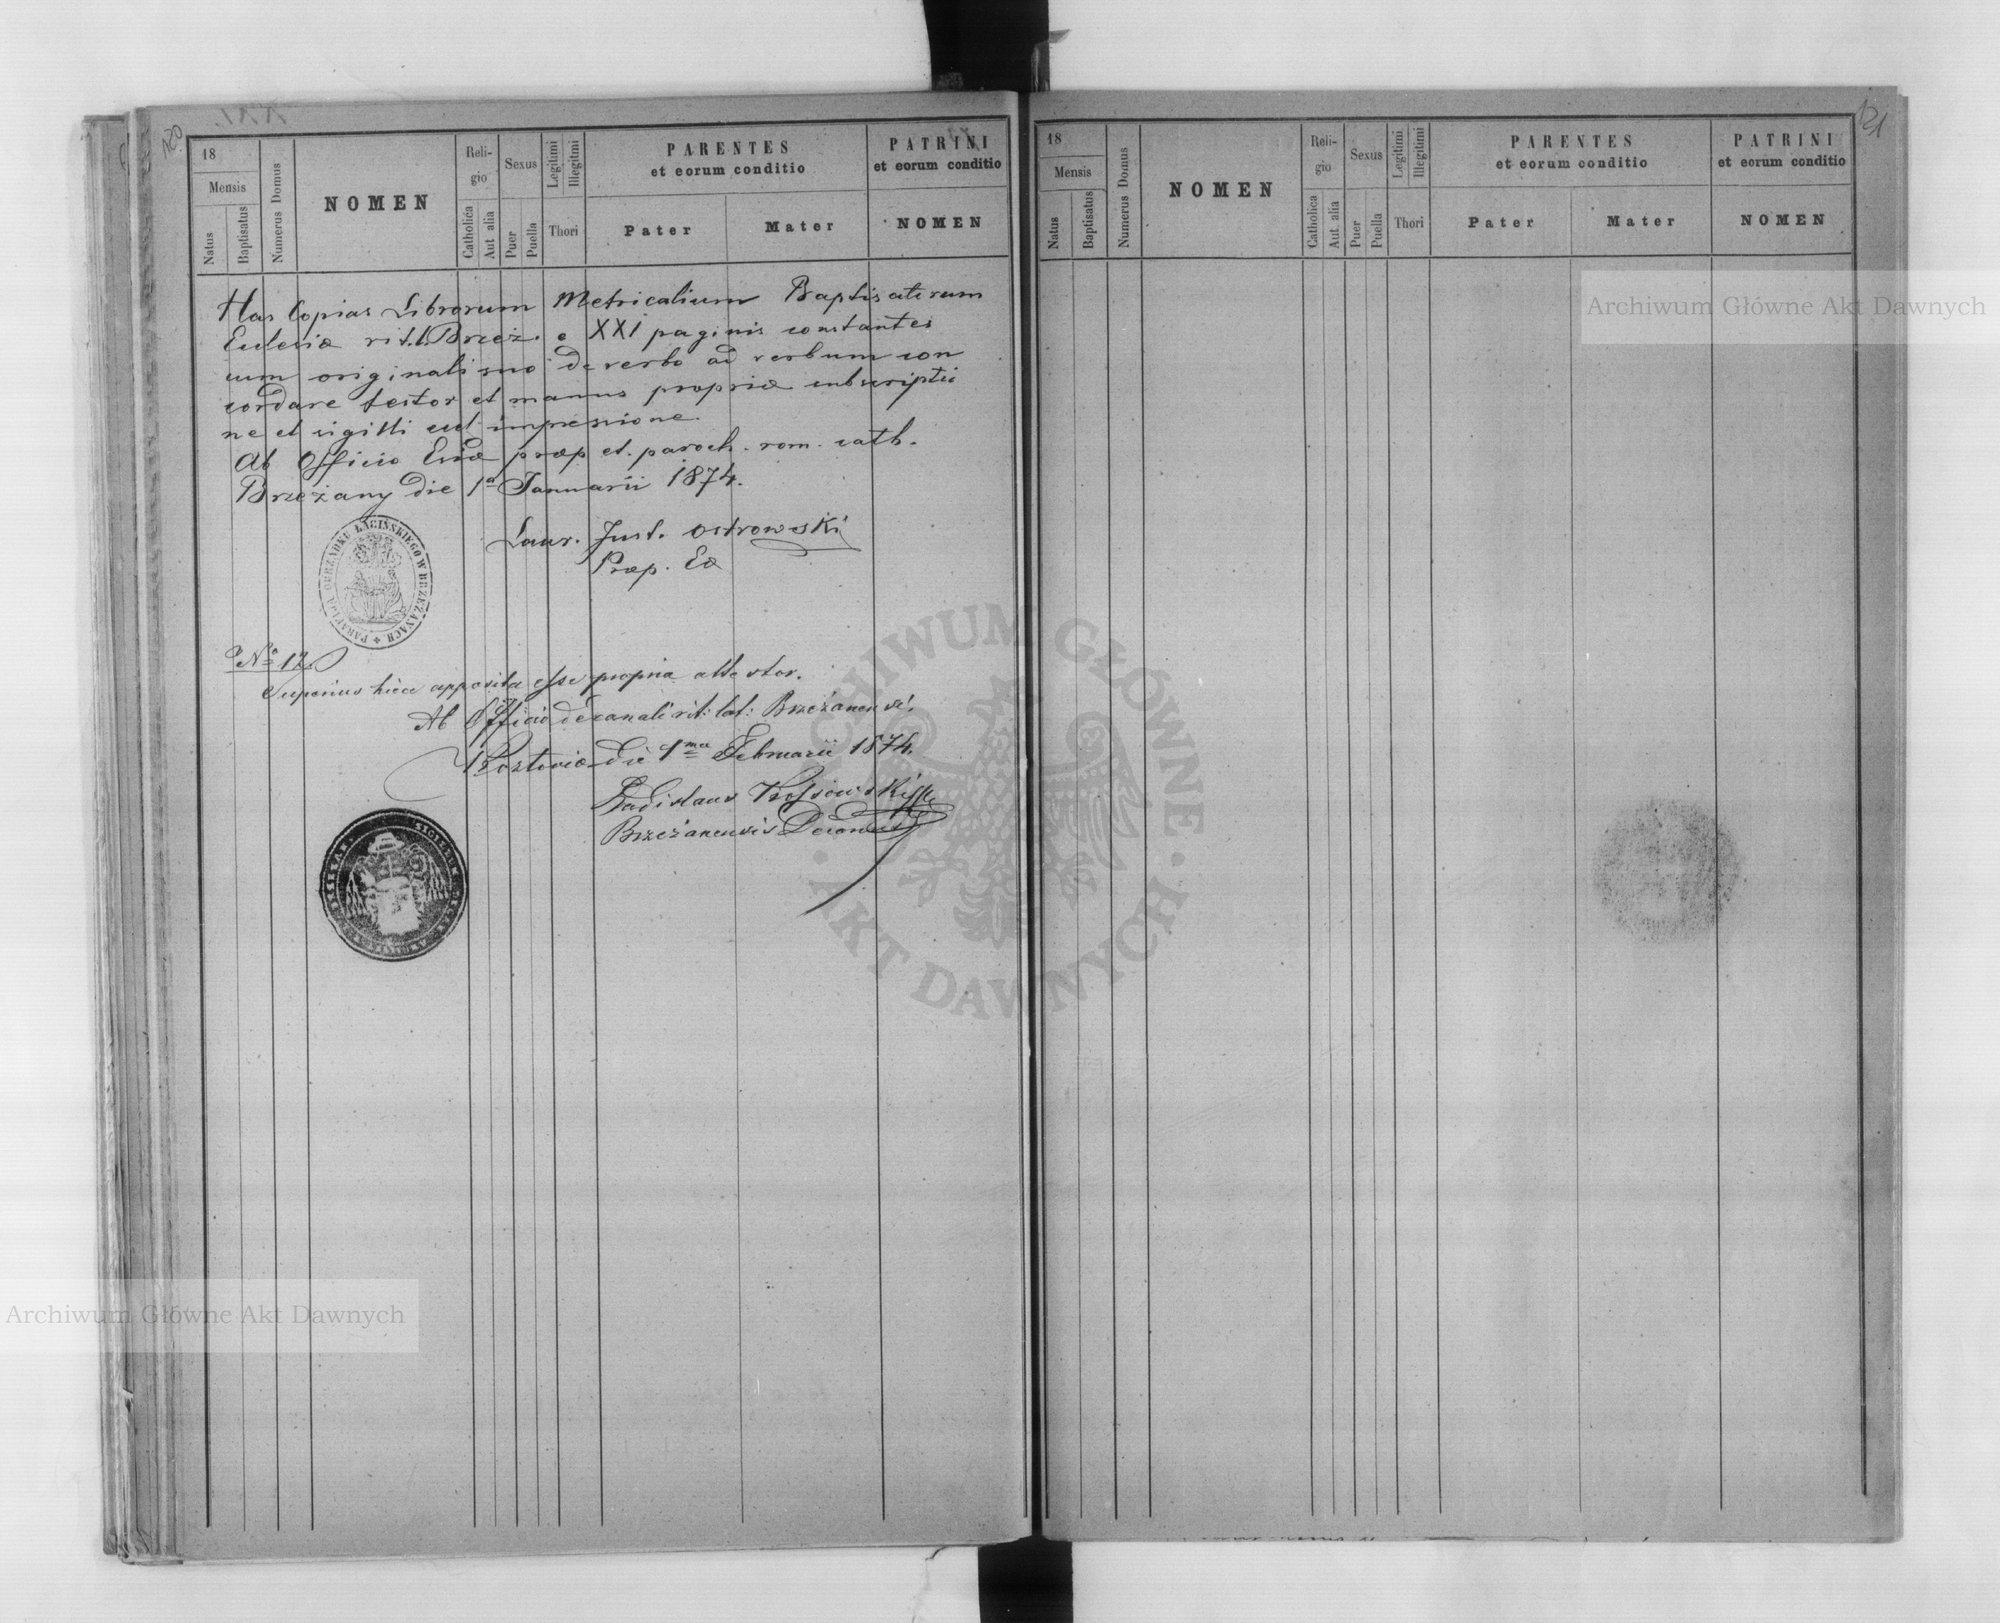 120
18
Mensis
Natus
Baptisatus
Numerus Domus
NOMEN
Reli-
gio
Catholica
Aut alia
Sexus
Puer
Puella
Legitimi
Illegitimi
Thori
PARENTES
et eorum conditio
Pater
Mater
PATRINI
et eorum conditio
NOMEN
Has Copias Librorum Metricalium Baptisatorum
Eclesiæ rit. l. Brzeż. e XXI paginis constantes
cum originali suo de verbo ad verbum con
cordare testor et manus propriæ subscriptio
ne et sigilli eccl impressione.
Ab Officio Ecclæ præp et. paroch. rom. cath.
Brzeżany die 1a Januarii 1874.
Laur. Just. Ostrowski
Præp. Eæ
PARAFIA OBRZĄDKU ŁACIŃSKIEGO W BRZEŻANACH
No 12
Superius hicce apposita esse propria attestor.
Ab Officio decanali rit: lat: Brzeżanensi.
die 1ma Februarii 1874.
Ladislaus
Brzeżanensis Decanus
SIGILLUM
121
18
Mensis
Natus
Baptisatus
Numerus Domus
NOMEN
Reli-
gio
Catholica
Aut. alia
Sexus
Puer
Puella
Legitimi
Illegitimi
Thori
PARENTES
et eorum conditio
Pater
Mater
PATRINI
et eorum conditio
NOMEN
Archiwum Główne Akt Dawnych
ARCHIWUM GŁÓWNE
AKT DAWNYCH
Archiwum Główne Akt Dawnych